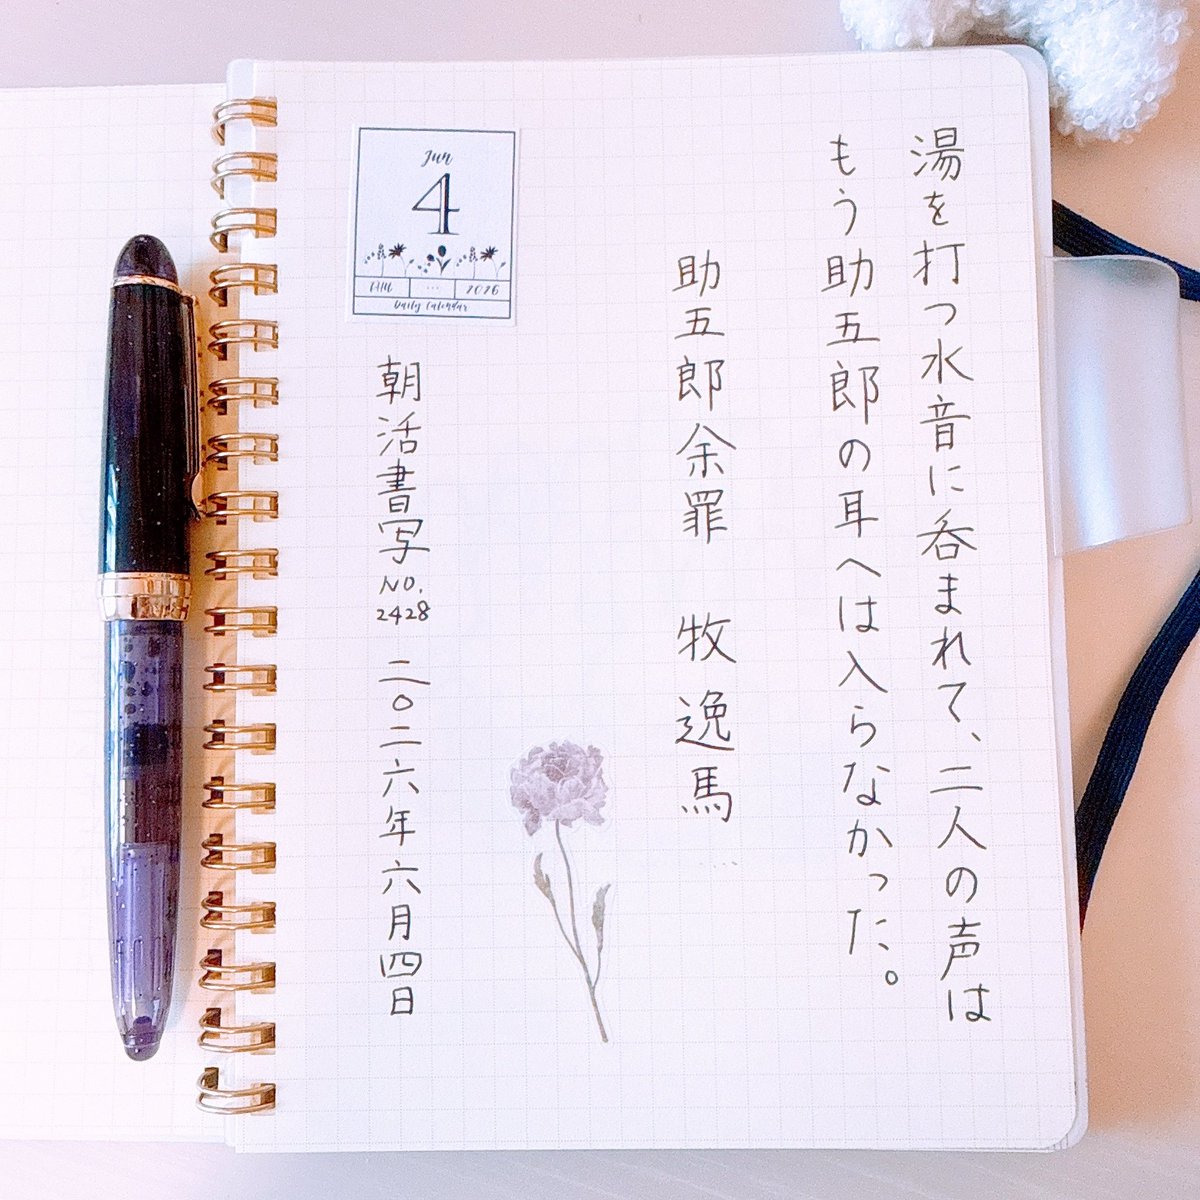 湯を打つ水音に呑まれて、二人の声は
もう助五郎の耳へは入らなかった。
助五郎余罪 牧逸馬
Jun
4
THU ... 2026
Daily Calendar
朝活書写 NO. 2428 二〇二六年六月四日